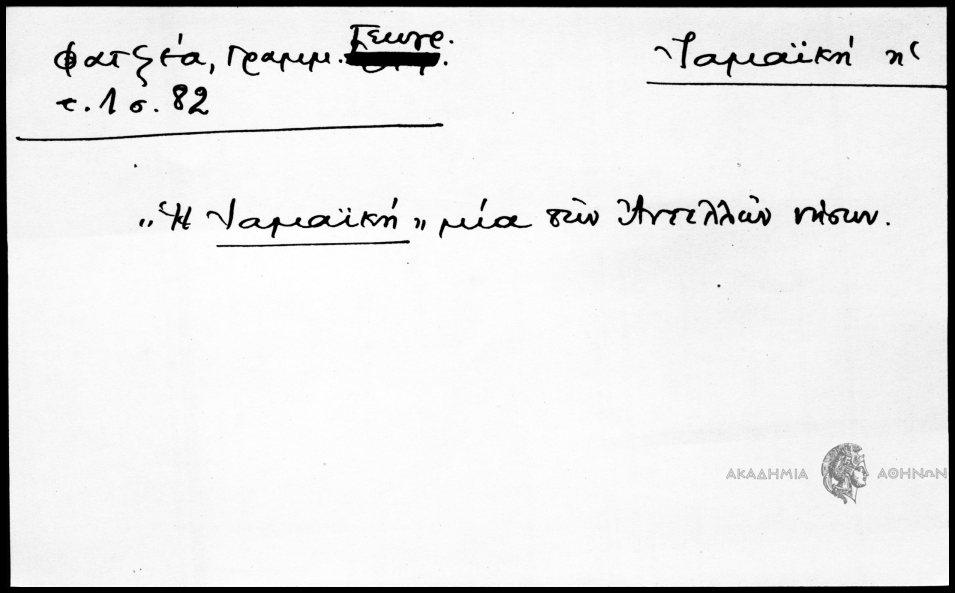 Φατζέα, Γραμμ. Γεωγρ.
τ. 1 σ. 82
Ἰαμαϊκή ἡ
„Ἡ Ἰαμαϊκή„ μία τῶν Ἀντελλῶν νήσων.
ΑΚΑΔΗΜΙΑ ΑΘΗΝΩΝ